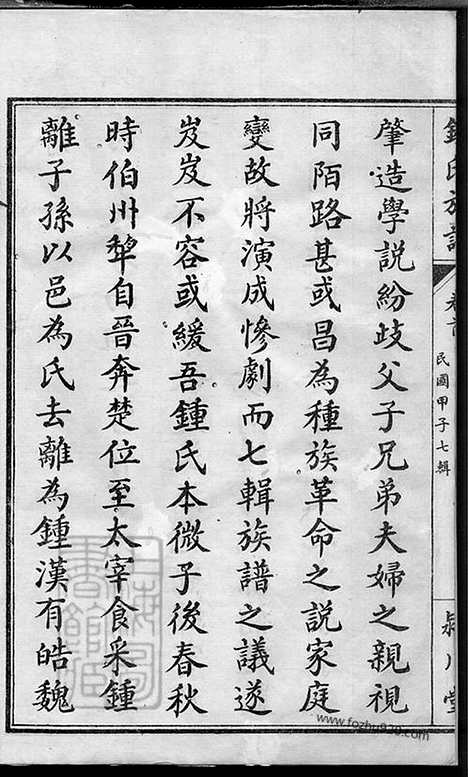 鍾氏族譜
卷首
民國甲子七輯
潁川堂
肇造學說紛歧父子兄弟夫婦之親視
同陌路甚或昌為種族革命之說家庭
變故將演成慘劇而七輯族譜之議遂
岌岌不容或緩吾鍾氏本微子後春秋
時伯州犂自晉奔楚位至太宰食采鍾
離子孫以邑為氏去離為鍾漢有皓魏
www.fozhu920.com